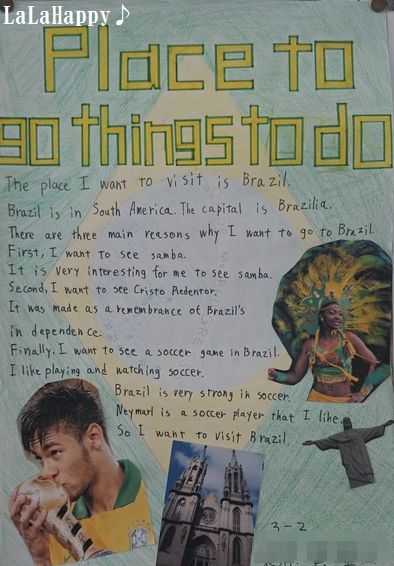 LaLaHappy♪
Place to
go things to do
The place I want to visit is Brazil.
Brazil is in South America. The capital is Brazilia.
There are three main reasons why I want to go to Brazil.
First, I want to see samba.
It is very interesting for me to see samba.
Second, I want to see Cristo Redentor.
It was made as a remembrance of Brazil's
in dependence.
Finally, I want to see a soccer game in Brazil.
I like playing and watching soccer.
Brazil is very strong in soccer.
Neymarl is a soccer player that I like.
So I want to visit Brazil.
3-2